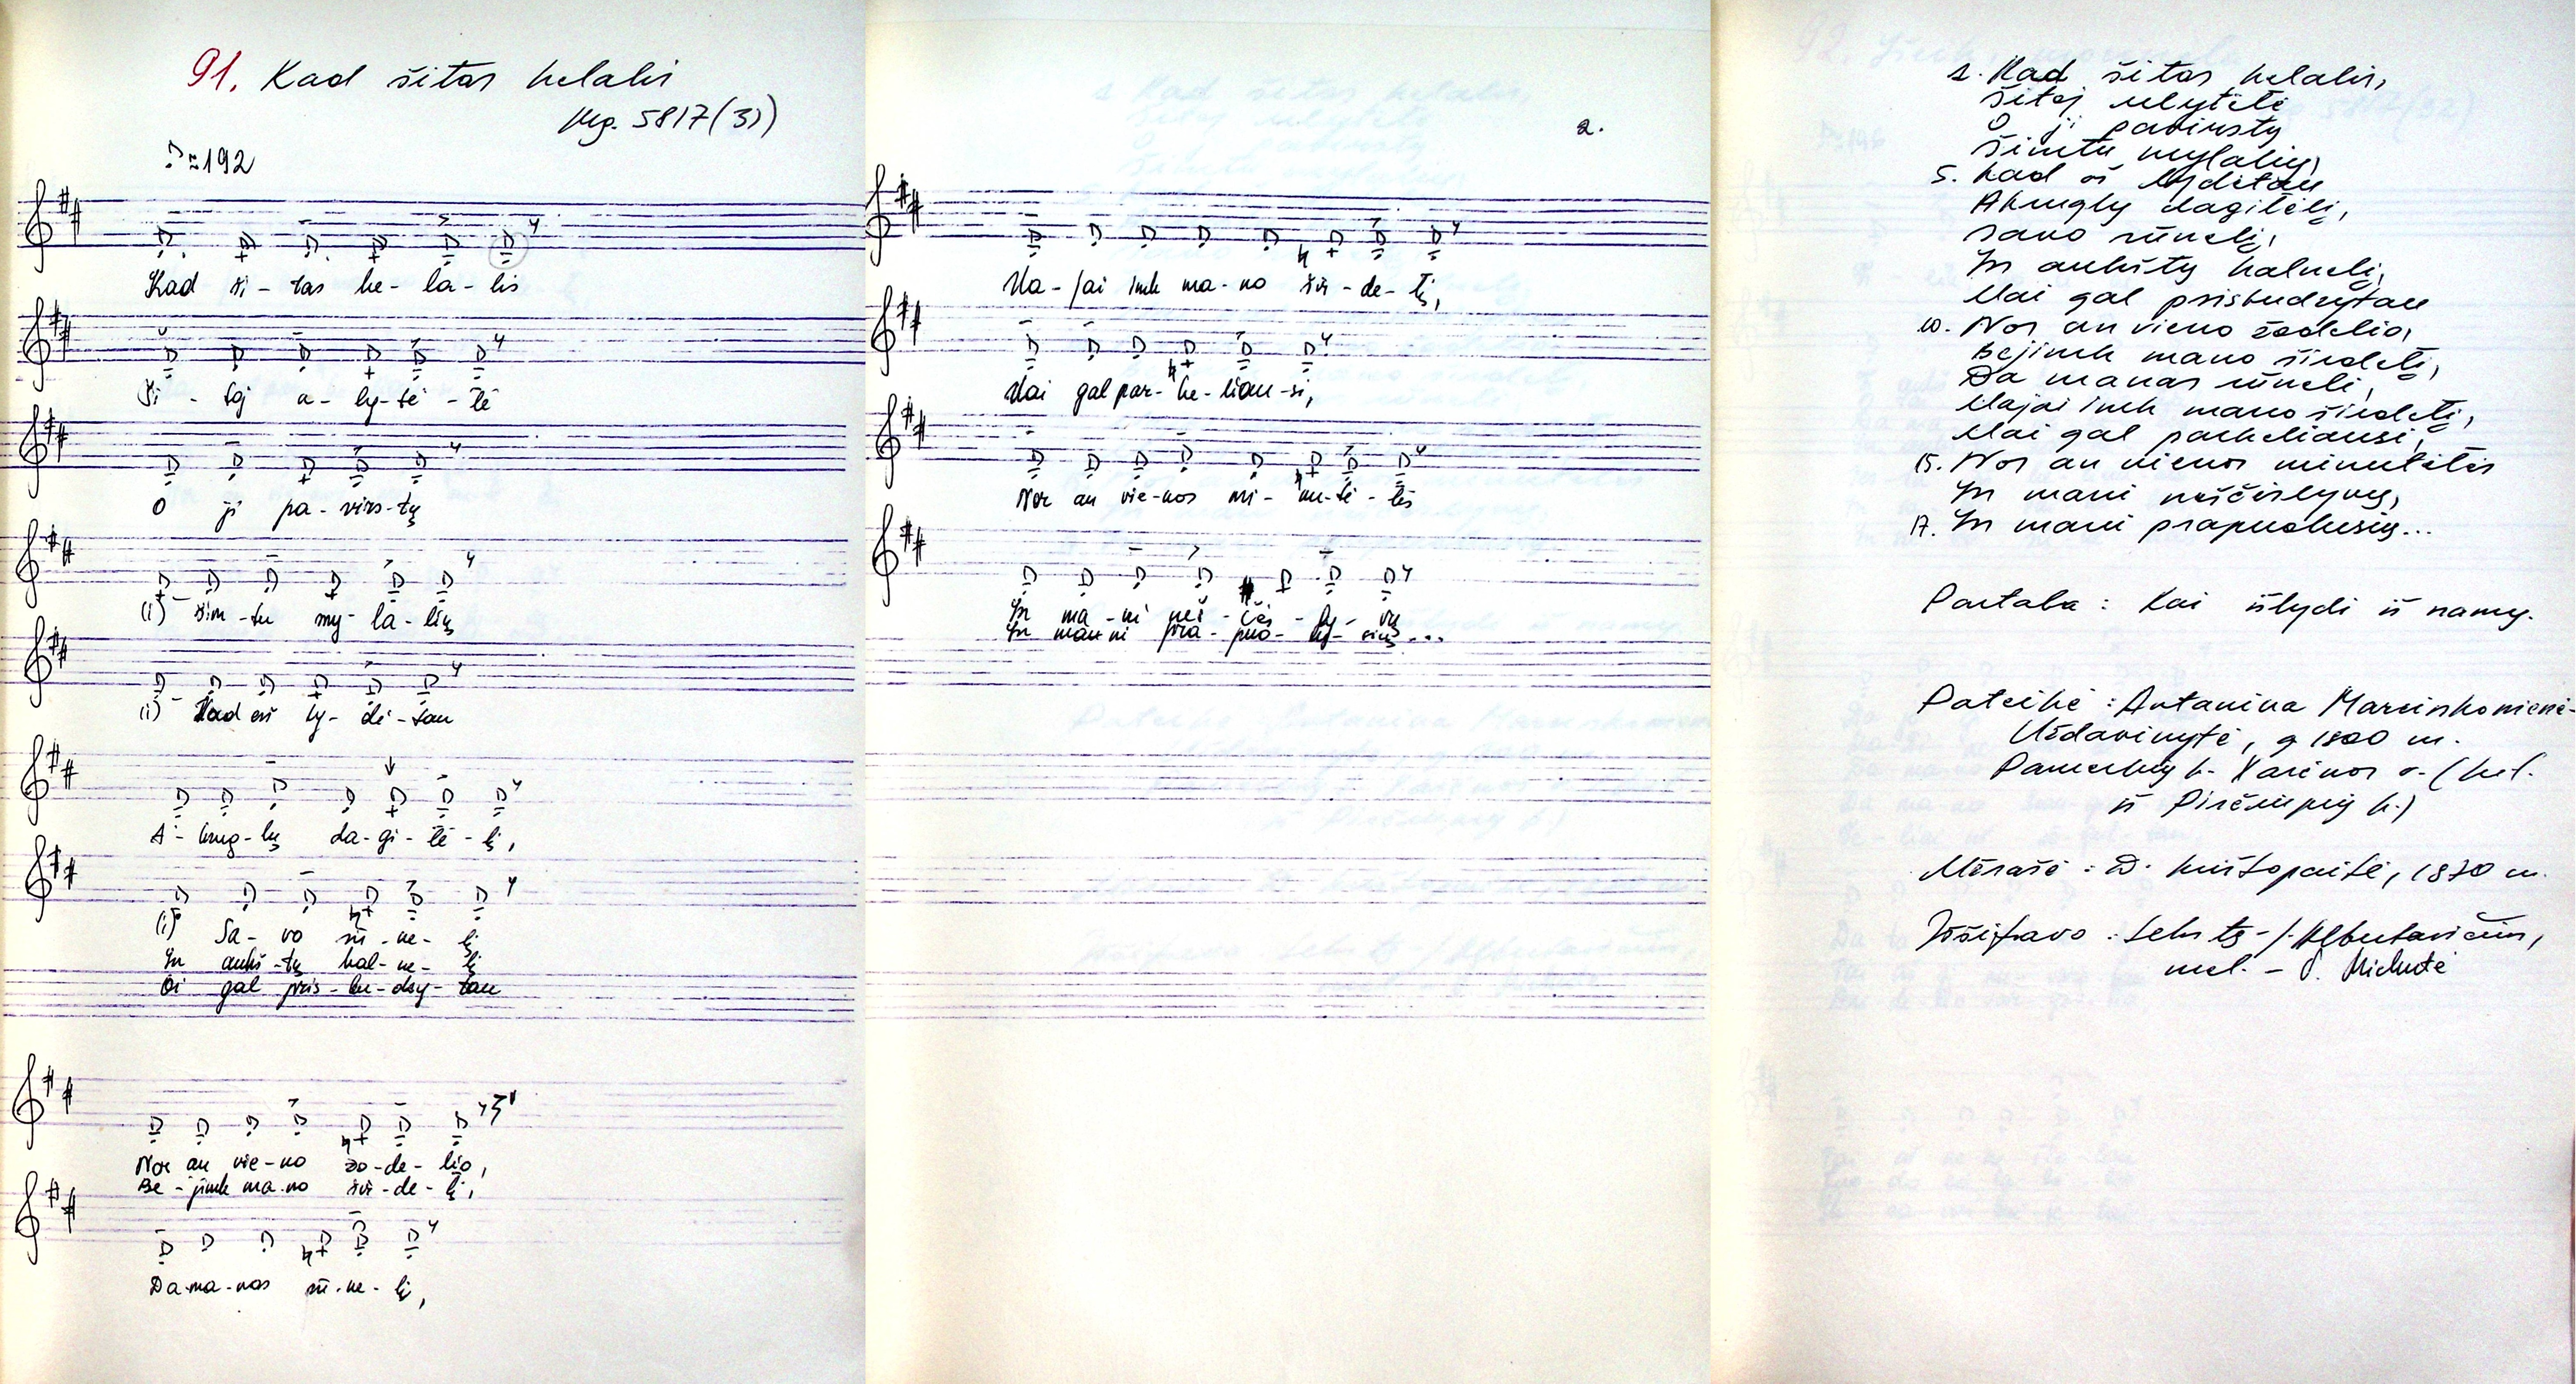 91. Kad šitas kelalis
Mg. 5817(31)
≈192
Kad ši-tas ke-la-lis
Ši-toj a-ly-tė-lė
O ji pa-virs-tų
(i) Šim-tu my-la-lių
(i) Kad aš ly-dė-tau
A-kmg-lų da-gi-lė-lį,
(i) Sa-vo sū-ne-lį
In aukš-tų kal-ne-lį
Oi gal pris-bu-dzy-tau
Nor an vie-no žo-de-lio,
Be-jink ma-no šir-de-lį,
Da ma-nas sū-ne-li,
2.
Ma-jai ink ma-no šir-de-lį,
Mai gal par-ke-liau-si,
Nor an vie-nos mi-nu-tė-lės
In ma-ni neš-čės-ly-vų
In ma-ni pra-puo-lu-sių...
1. Kad šitas kelalis,
Šitoj ulytėlė
O ji pavirstų
Šimtu mylalių,
5. Kad aš lydėtau
Akmglų dagilėlį,
Savo sūnelį,
In aukštų kalnelį,
Mai gal prisbudzytau
10. Nor an vieno žodelio,
Bejink mano širdelį,
Da manas sūneli,
Majai ink mano širdelį,
Mai gal parkeliausi,
15. Nor an vienos minutėlės
In mani neščėslyvų,
17. In mani prapuolusių...
Pastaba: Kai išlydi iš namų.
Pateikė: Antanina Marcinkonienė-
Uždavinytė, g 1900 m.
Pamerkių k. Varėnos r. (kil.
iš Pirčiupių k.)
Įrašė: D. Krištopaitė, 1970 m.
Iššifravo: tekstą - J. Albertavičius,
mel. - O. Mickutė